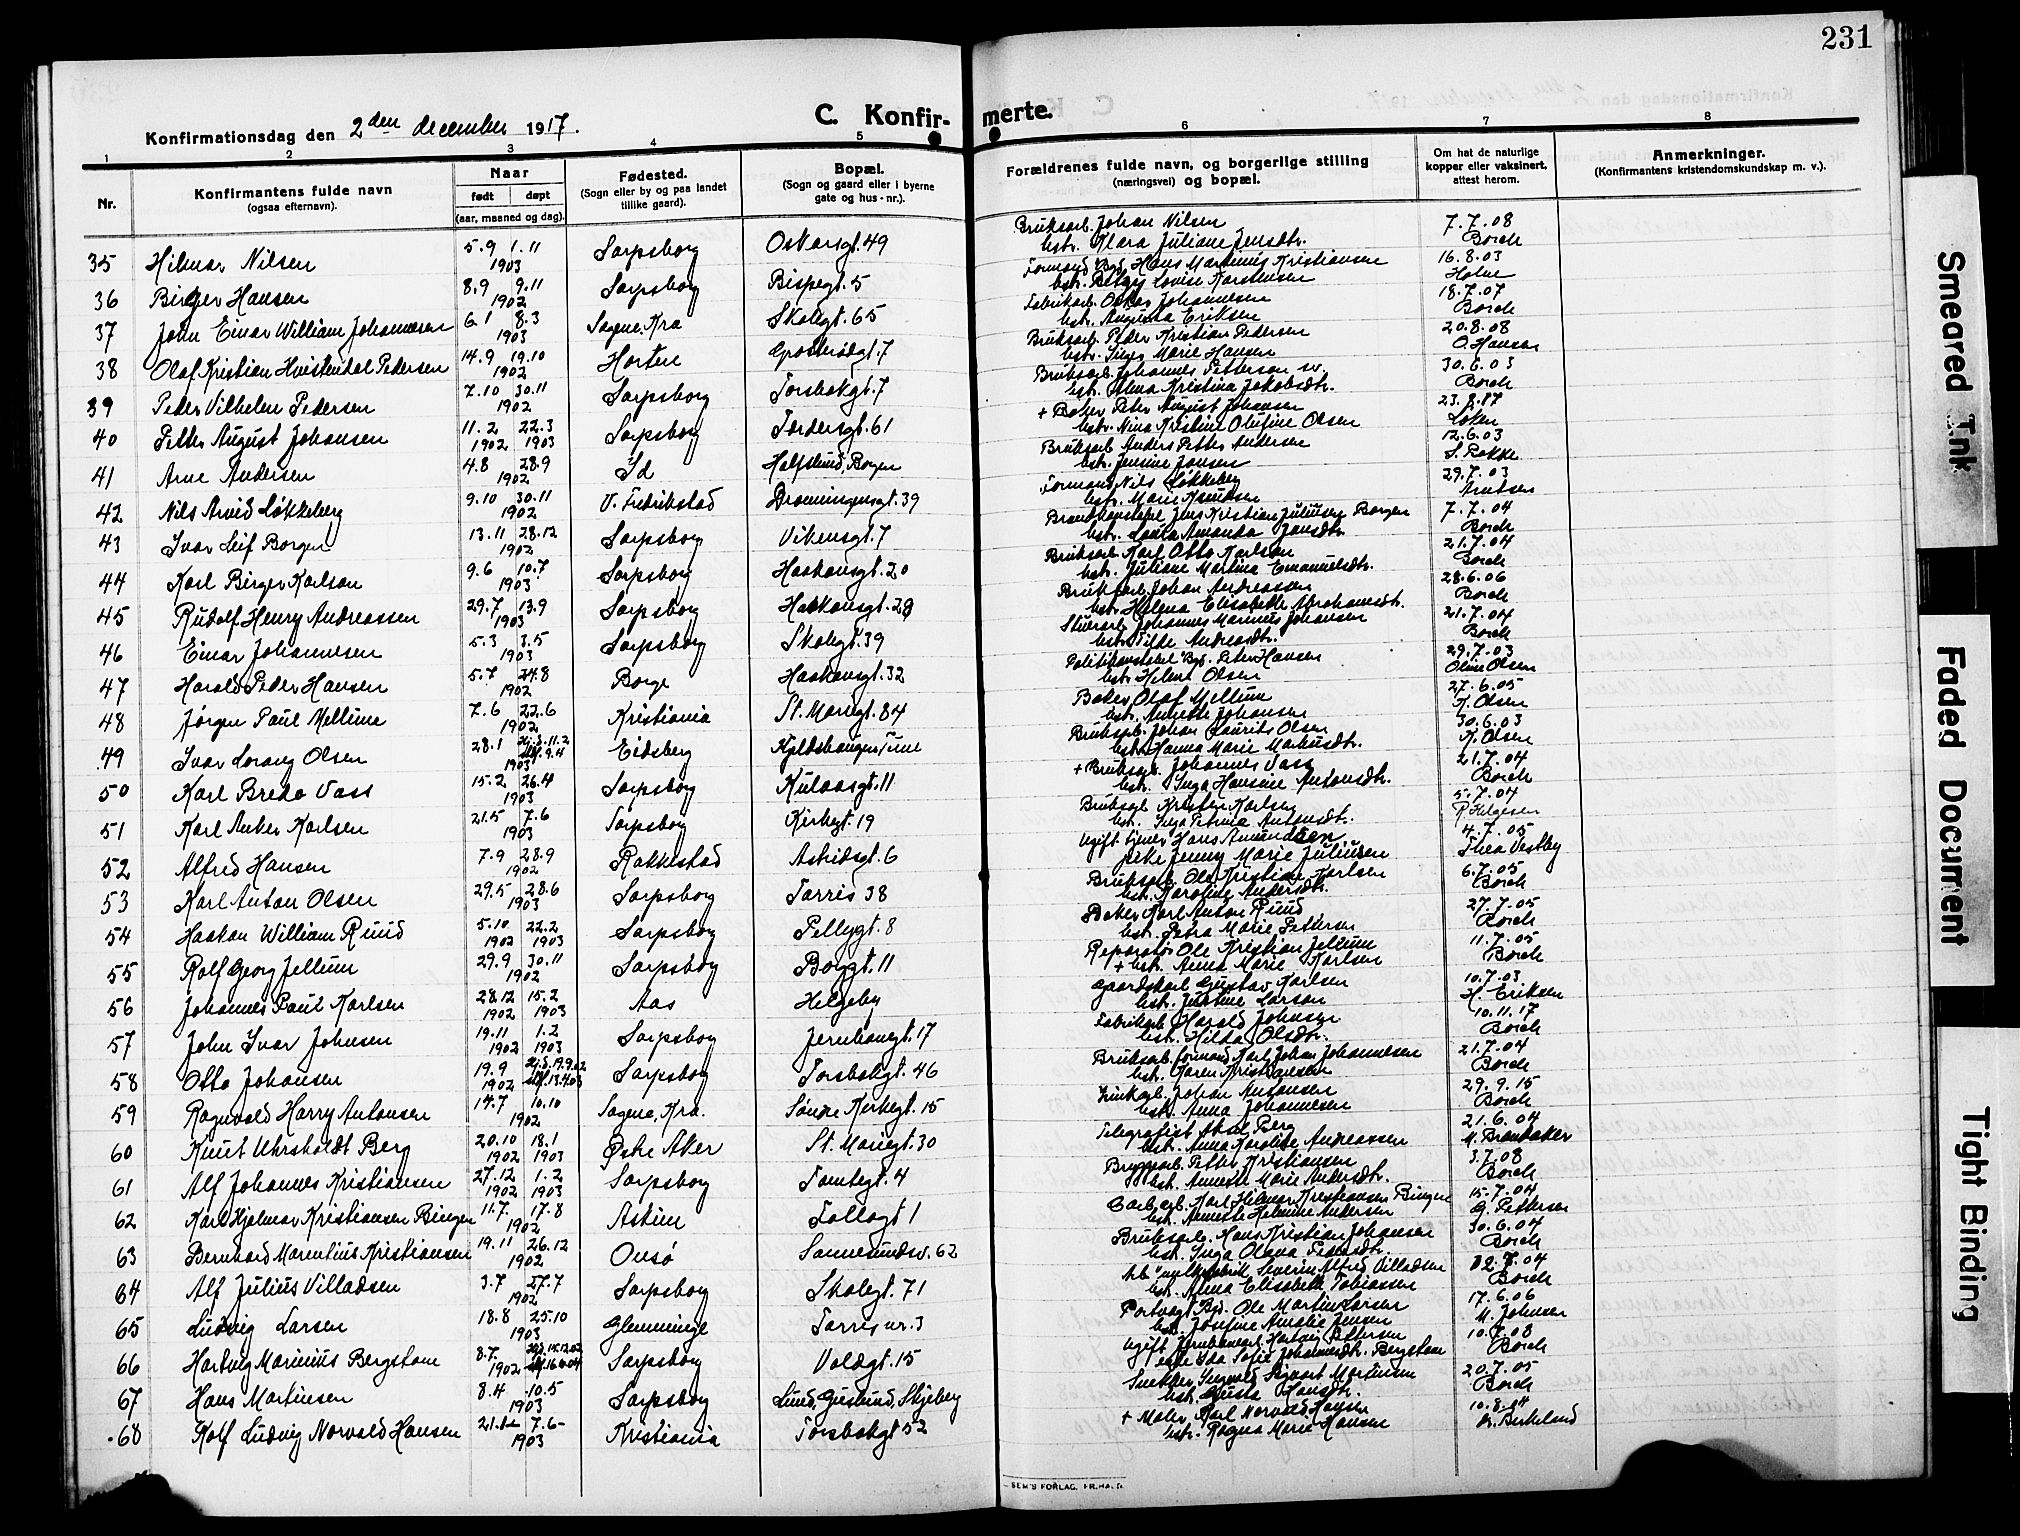 231
Konfirmationsdag den 2den december 1917.
C. Konfirmerte.
1 2 3 4 5 6 7 8
Nr.
Konfirmantens fulde navn
(ogsaa efternavn).
Naar
født døpt
(aar, maaned og dag).
Fødested.
(Sogn eller by og paa landet
tillike gaard).
Bopæl.
(Sogn og gaard eller i byerne
gate og hus-nr.).
Forældrenes fulde navn, og borgerlige stilling
(næringsvei) og bopæl.
Om hat de naturlige
kopper eller vaksinert,
attest herom.
Anmerkninger.
(Konfirmantens kristendomskundskap m. v.).
35 Hilmar Nilsen 5.9 1.11 1903 Sarpsborg Oskarsgt. 49 Bruksarb. Johan Nilsen hstr. Klara Juliane Jensdtr. 7.7.08 Borch
36 Birger Hansen 8.9 9.11 1902 Sarpsborg Bispegt. 5 Formand Hans Martinius Kristiansen hstr. Betsy Lovise Karstensen 16.8.03 Holm
37 John Einar William Johannesen 6.1 8.3 1903 Sagene, Kra Skolegt. 65 Fabrikarb. Oskar Johannesen hstr. Augusta Eriksen 18.7.07 Borch
38 Olaf Kristian Hvistendal Pedersen 14.9 19.10 1902 Horten 7 Bruksarb. Peder Kristian Pedersen hstr. Inga Marie Hansen 20.8.08 O. Hansen
39 Peder Vilhelm Pedersen 7.10 30.11 1902 Sarpsborg Torsbakgt. 7 Bruksarb. Johannes Petterson sv. hstr. Alma Kristina Jakobsdtr. 30.6.03 Borch
40 Petter August Johansen 11.2 1902 22.3 1903 Sarpsborg Tordersgt. 61 + Baker Peter August Johansen hstr. Nina Kristine Olufine Olsen 23.8.17 Løken
41 Arne Andersen 4.8 28.9 1902 Id Hafslund, Borgen Bruksarb. Anders Petter Andersen hstr. Jensine Jansen 12.6.03 S. Bakke
42 Nils Arvid Løkkeberg 9.10 30.11 1902 V. Fredrikstad Dronningensgt. 39 Formand Nils Løkkeberg hstr. Marie Knudsen 29.7.03 Arntsen
43 Ivar Leif Borgen 13.11 28.12 1902 Sarpsborg Vikensgt. 7 Brandkonstabel Jens Kristian Juliussen Borgen hstr. Laura Amanda Jansdtr. 7.7.04 Borch
44 Karl Birger Karlson 9.6 10.7 1903 Sarpsborg Haakonsgt. 20 Bruksarb. Karl Otto Karlson hstr. Juliane Martina Emanuelsdtr. 21.7.04 Borch
45 Rudolf Henry Andreassen 29.7 13.9 1903 Sarpsborg Haakonsgt. 28 Bruksarb. Johan Andreassen hstr. Helena Elisabeth Abrahamsdtr. 28.6.06 Borch
46 Einar Johannesen 5.3 3.5 1903 Sarpsborg Skolegt. 39 Johannes Marinus Johansen hstr. Tilde Andreasdtr. 21.7.04 Borch
47 Harald Peder Hansen 5.7 24.8 1902 Borge Haakonsgt. 32 Politikonstabel Peter Hansen hstr. Helene Olsen 29.7.03 Oline Olsen
48 Jørgen Paul Mellum 7.6 22.6 1902 Kristiania St. Mariegt. 84 Baker Olaf Mellum hstr. Annette Johansen 27.6.05 K. Olsen
49 Ivar Lorang Olsen 28.1 1903 Eidsberg Tune Bruksarb. Johan Laurits Olsen hstr. Hanna Marie Markusdtr. 30.6.03 K. Olsen
50 Karl Bredo Vass 15.2 26.4 1903 Sarpsborg Kulaasgt. 11 + Bruksarb. Johannes Vass hstr. Inga Hansine Antonsdtr. 21.7.04 Borch
51 Karl Anker Karlsen 21.5 7.6 1903 Sarpsborg Kirkegt. 19 Bruksarb. Kristen Karlsen hstr. Inga Petrine Antonsdtr. 5.7.04 R. Helgesen
52 Alfred Hansen 7.9 28.9 1902 Rakkestad Astridsgt. 6 Ugift tjener Hans Amundsen pike Jenny Marie Juliusen 4.7.05 Thea Vestby
53 Karl Anton Olsen 29.5 28.6 1903 Sarpsborg Tarris 38 Bruksarb. Ole Kristian Karlsen hstr. Karoline Andersdtr. 6.7.05 Borch
54 Haakon William Ruud 5.10 1902 22.2 1903 Sarpsborg Pellygt. 8 Baker Karl Anton Ruud hstr. Petra Marie Pettersen 27.7.05 Borch
55 Rolf Georg Jellum 29.9 30.11 1902 Sarpsborg Borggt. 11 Reparatør Ole Kristian Jellum + hstr. Anna Marie Karlsen 11.7.05 Borch
56 Johannes Paul Karlsen 28.12 1902 15.2 1903 Aas Helgeby Gaardskarl Gustav Karlsen hstr. Justine Larsen 10.7.03 H. Eriksen
57 John Ivar Johnsen 19.11 1902 1.2 1903 Sarpsborg Jernbanegt. 17 Fabrikarb. Harald Johnsen hstr. Hilda Olsdtr. 10.11.17 Borch
58 Otto Johansen 19.9 1902 Sarpsborg Torsbakgt. 46 Bruksarb. formand Karl Johan Johannesen hstr. Karen Kristiansen 21.7.04 Borch
59 Ragnvald Harry Antonsen 14.7 10.10 1902 Sagene, Kra. Søndre Kirkegt. 15 Zinkarb. Johan Antonsen hstr. Anna Johannesen 29.9.15 Borch
60 Knut Uhrsholdt Berg 20.10 1902 18.1 1903 Østre Aker St. Mariegt. 30 Telegrafist Aksel Berg hstr. Anna Karoline Andreassen 21.6.04 M. Brandaker
61 Alf Johannes Kristiansen 27.12 1902 1.2 1903 Sarpsborg Tomtegt. 4 Bryggearb. Petter Kristiansen hstr. Annette Marie Andersdtr. 3.7.08 Borch
62 Karl Hjalmar Kristiansen Bingen 11.7. 17.8 1902 Askim Tollogt 1 Carb.arb. Karl Hilmar Kristiansen Bingen hstr. Annette Helmine Andersen 15.7.04 G. Pettersen
63 Bernhard Marentius Kristiansen 19.11 26.12 1902 Onsø Sannesundsv. 62 Bruksarb. Hans Kristian Johansen hstr. Inga Olava Pedersdtr. 30.6.04 Borch
64 Alf Julius Villadsen 3.7 27.7 1902 Sarpsborg Skolegt. 71 Severin Alfred Villadsen hstr. Alma Elisabeth Tobiassen 12.7.04 Borch
65 Ludvig Larsen 18.8 25.10 1903 Glemminge Tarris nr. 3 Portvagt Ole Martin Larsen hstr. Josefine Amalie Jensen 17.6.06 M. Johnsen
66 Hartvig Marinius Bergstøm 8.7. 1902 Sarpsborg Voldgt. 15 Ugift Jernbanearb. Hartvig Pettersen pike Ida Sofie Johannesdtr. Bergstøm 10.7.08 Borch
67 Hans Martinsen 8.4 10.5 1903 Sarpsborg Lund, Guslund, Skjeberg Snekker Ingvald Sigvart Martinsen hstr. Gusta Hansdtr. 20.7.05 Borch
68 Rolf Ludvig Norvald Hansen 7.6 1903 Kristiania Torsbakgt 52 + Maler Karl Norvald Hansen hstr. Ragna Marie Hansen 10.8.04 Birkelund
SEM'S FORLAG, FR.HALD.
Smeared Ink
Faded Document
Tight Binding